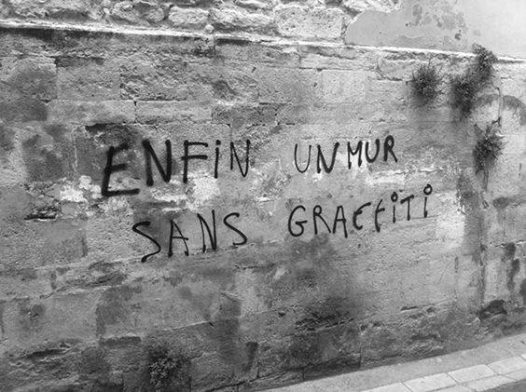 ENFiN UN MUR
SANS GRAFFiTi